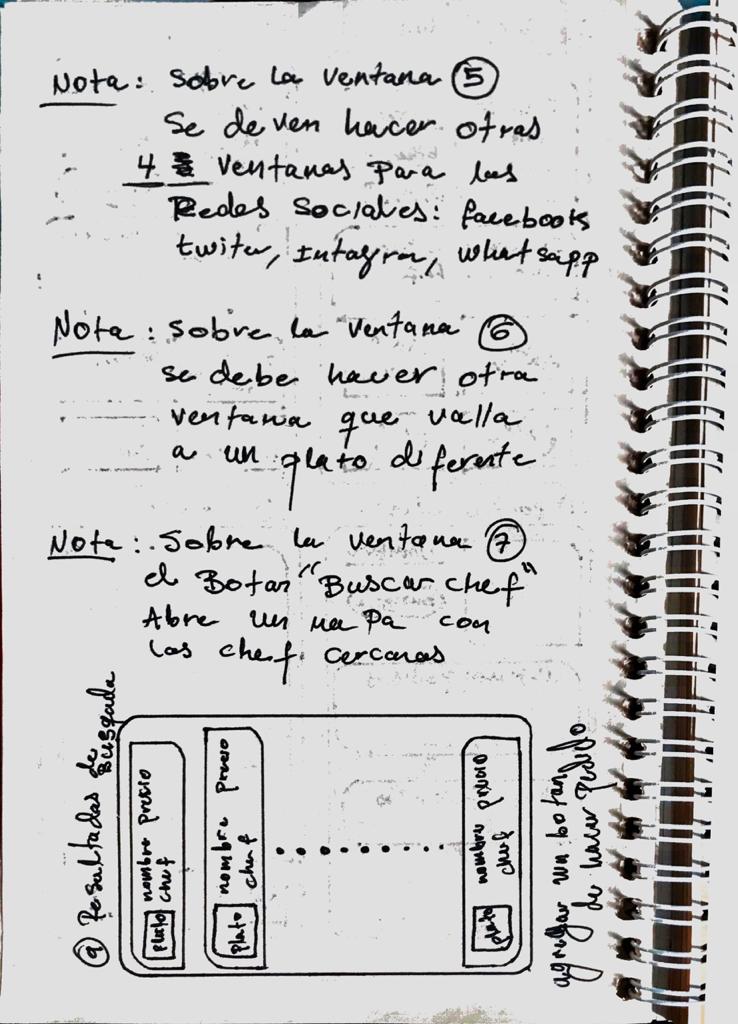 Nota: Sobre la ventana 5
Se deven hacer otras
4 ventanas para las
Redes Sociales: facebooks
twiter, Intagra, Whatsapp
Nota: Sobre la ventana 6
se debe hacer otra
ventana que valla
a un plato diferente
Nota: Sobre la ventana 7
el Boton "Buscar chef"
Abre un mapa con
los chef cercanos
9 Resultados de
Busqada
plato nombre precio
chef
Plato nombre precio
chef
plato nombre precio
chef
agregar un boton
de hacer pedido